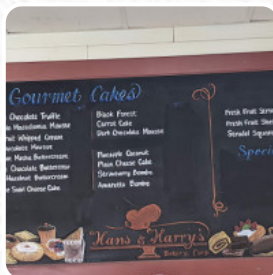 Gourmet Cakes
Chocolate Truffle
Macadamia Mousse
Fruit Whipped Cream
Chocolate Mousse
Mocha Buttercream
Chocolate Buttercream
Hazelnut Buttercream
Cheese Cake
Black Forest
Carrot Cake
Dark Chocolate Mousse
Pineapple Coconut
Plain Cheese Cake
Strawberry Bombe
Amaretto Bombe
Fresh Fruit
Fresh Fruit
Hans & Harry's
Bakery, Corp